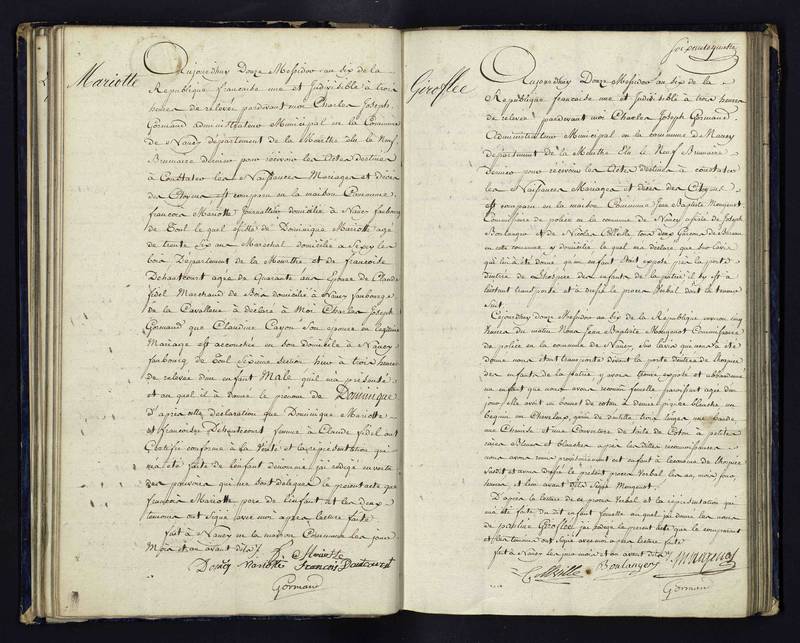 Mariotte
Aujourdhuy Douze Messidor an six de la
République francoise une et Indivisible à trois
heures de relevée pardevant moi Charles Joseph
Gormand administrateur Municipal en la Commune
de Nancy département de la Meurthe élu le Neuf
Brumaire dernier pour recevoir les Actes destinés
à Constater les Naissances Mariages et décès
des Citoyens est comparu en la maison Commune
francois Mariotte Journallier domicilié à Nancy fauxbourg
de Toul le quel assisté de Dominique Mariotte agé
de trente six ans Marechal domicilié à
bois Département de la Meurthe et de francoise
agée de Quarante ans Epouse de Claude
fidel Marchand de Bois domicilié à Nancy fauxbourg
de la Cavallerie à déclaré à Moi Charles Joseph
Gormand que Claudine Cayon son epouse en legitime
Mariage est accouchée en son domicile à Nancy
fauxbourg de Toul septieme section hier à trois heures
de relevée dun enfant Male quil ma présenté
et au quel il à donné le prenom de Dominique
D'après cette declaration que Dominique Mariotte
et francoise femme à Claude fidel ont
Certifié conforme à la Verité et la représentation qui
ma été faite de lenfant dénommé jai rédigé en vertu
des pouvoirs qui me sont delegués le présent acte que
francois Mariotte pere de lenfant et les deux
temoins ont signé avec moi après lecture faite
fait à Nancy en la maison Commune les jour
Mois et an avant dits
F Mariotte
Domiq Mariotte francois
Gormand
Giroflée
Aujourdhuy Douze Messidor an six de la
République francoise une et Indivisible à trois heures
de relevée pardevant moi Charles Joseph Gormand
Administrateur Municipal en la commune de Nancy
département de la Meurthe Elu le Neuf Brumaire
dernier pour recevoir les Actes destinés à constater
les Naissances Mariages et décès des Citoyens
est comparu en la maison Commune Jean Baptiste Mougenot
Commissaire de police en la commune de Nancy assisté de Joseph
Boulanger et de Nicolas Colleville tous deux Garcons de Bureau
en cette commune y domiciliés le quel ma déclaré que sur lavis
qui lui à été donné quun enfant etoit exposé près la porte
dentrée de Lhospice des enfants de la patrie il sy est à
linstant transporté et à dressé le proces Verbal dont la teneur
suit
Cejourdhuy douze Messidor an six de la République environ cinq
heures du matin Nous Jean Baptiste Mougenot Commissaire
de police en la commune de Nancy, sur lavis que nous a été
donné nous etant transporté devant la porte dentrée de lhospice
des enfants de la patrie y avons trouvé exposé et abbandonné
un enfant que nous avons reconnu femelle paroissant agée dun
jour, elle avoit un bonnet de coton à piquée blanche un
beguin garni de dentelle trois langes une bande,
une Chemise et une Couverture de toile de Coton à petites
raies bleues et blanches après les dites reconnoissances
nous avons remis provisoirement cet enfant à leconome de lhospice
susdit et avons dressé le présent proces Verbal les an, mois, jour,
heures et lieu avant dits Signé Mougenot.
D'après la lecture de ce proces Verbal et la représentation qui
ma été faite du dit enfant femelle au quel jai donné les noms
de pauline Giroflée jai rédigé le present acte que le comparant
et les temoins ont signé avec moi après lecture faite
fait à Nancy les jour mois et an avant dits
Colleville Boulanger Mougenot
Gormand